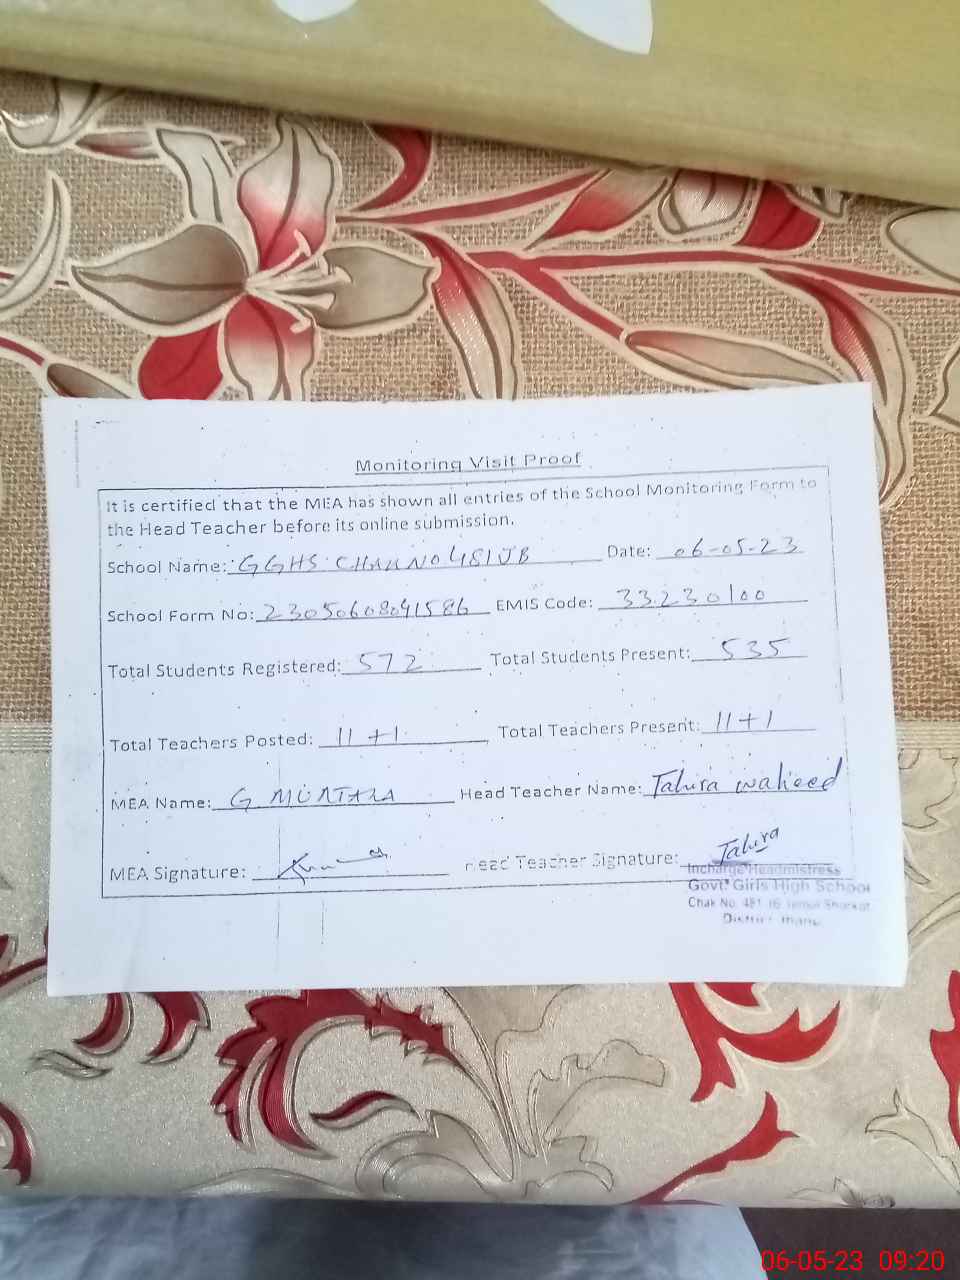 Monitoring Visit Proof
It is certified that the MEA has shown all entries of the School Monitoring Form to
the Head Teacher before its online submission.
School Name: GGHS CHAK NO 481 JB Date: 06-05-23
School Form No: 23050608041586 EMIS Code: 33230100
Total Students Registered: 572 Total Students Present: 535
Total Teachers Posted: 11+1 Total Teachers Present: 11+1
MEA Name: G MURTAZA Head Teacher Name: Tahira waheed
MEA Signature: Head Teacher Signature: Tahira
Incharge Headmistress
Govt. Girls High School
Chak No. 481
District Jhang
06-05-23 09:20